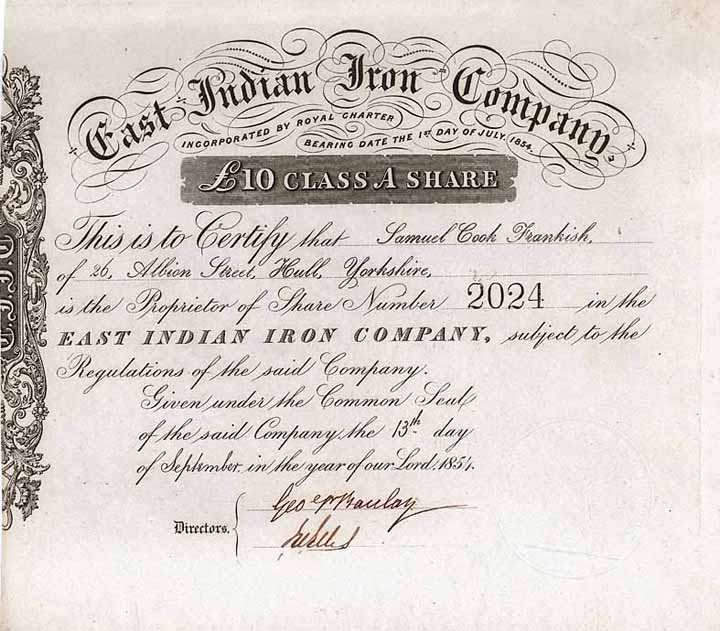 East Indian Iron Company
INCORPORATED BY ROYAL CHARTER
BEARING DATE THE 1ST DAY OF JULY, 1854.
£10 CLASS A SHARE
This is to Certify that Samuel Cook Frankish,
of 26, Albion Street, Hull, Yorkshire,
is the Proprietor of Share Number 2024 in the
EAST INDIAN IRON COMPANY, subject to the
Regulations of the said Company.
Given under the Common Seal
of the said Company the 13th day
of September, in the year of our Lord, 1854.
Geo P Barclay
Directors.